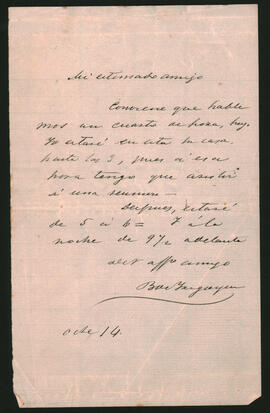 Mi estimado amigo
Conviene que hable
mos un cuarto de hora, hoy.
Yo estaré en esta su casa,
hasta las 3, pues á esa
hora tengo que asistir
á una reunion —
Despues, estaré
de 5 á 6 = Y á la
noche de 9 1/2 adelante
affo amigo
Octe 14.